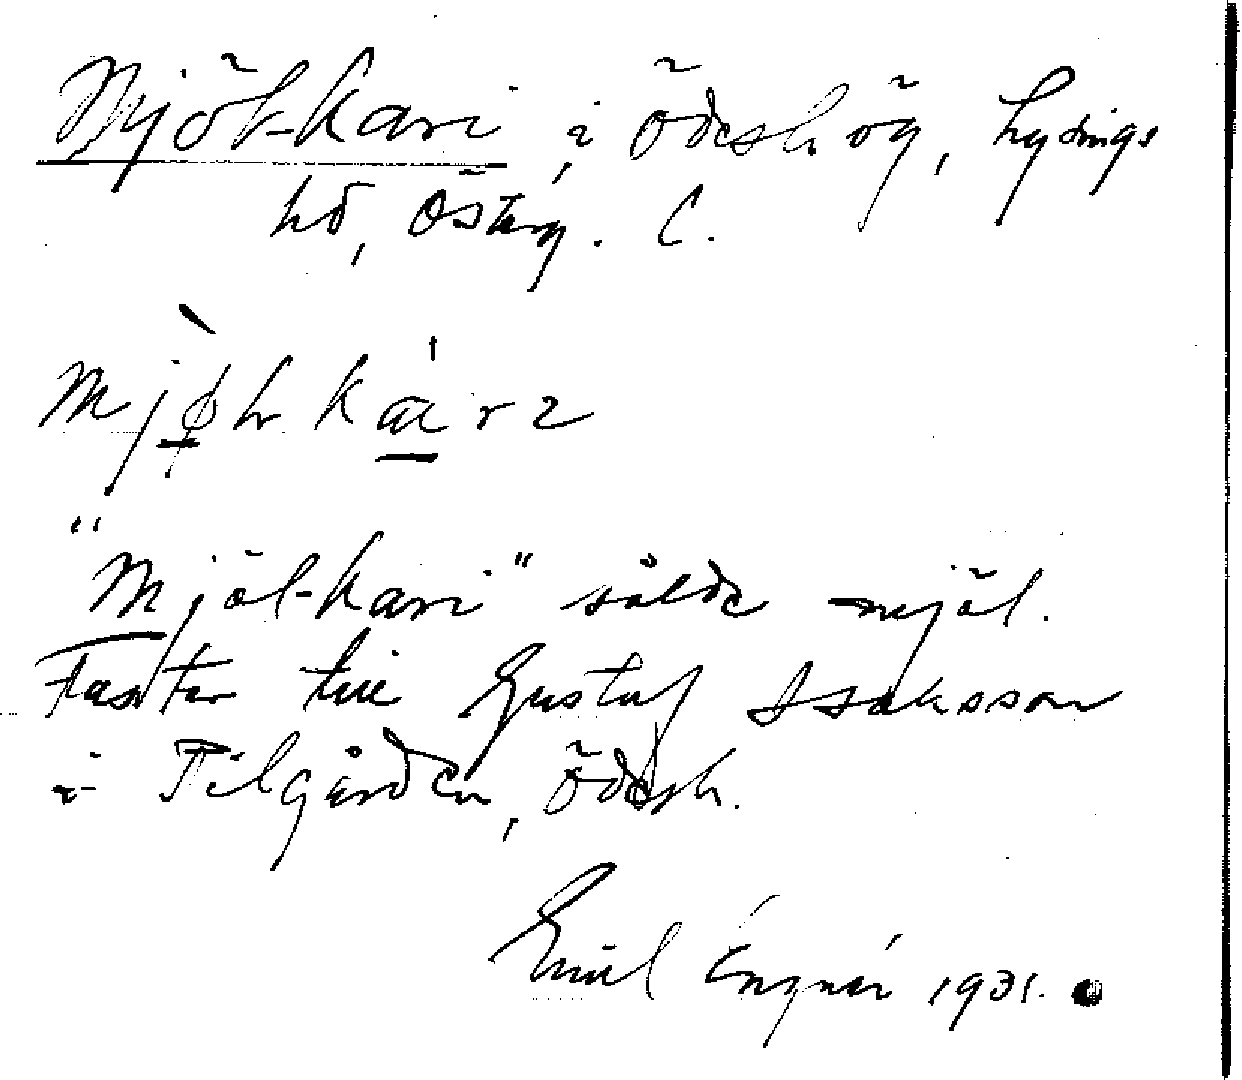 Mjöl-Kari i Ödeshög, Lysings
hd, Österg. l.
"Mjöl-Kari" sålde mjöl.
Faster till Gustaf Isaksson
i Pilgården, Ödesh.
Emil 1931.